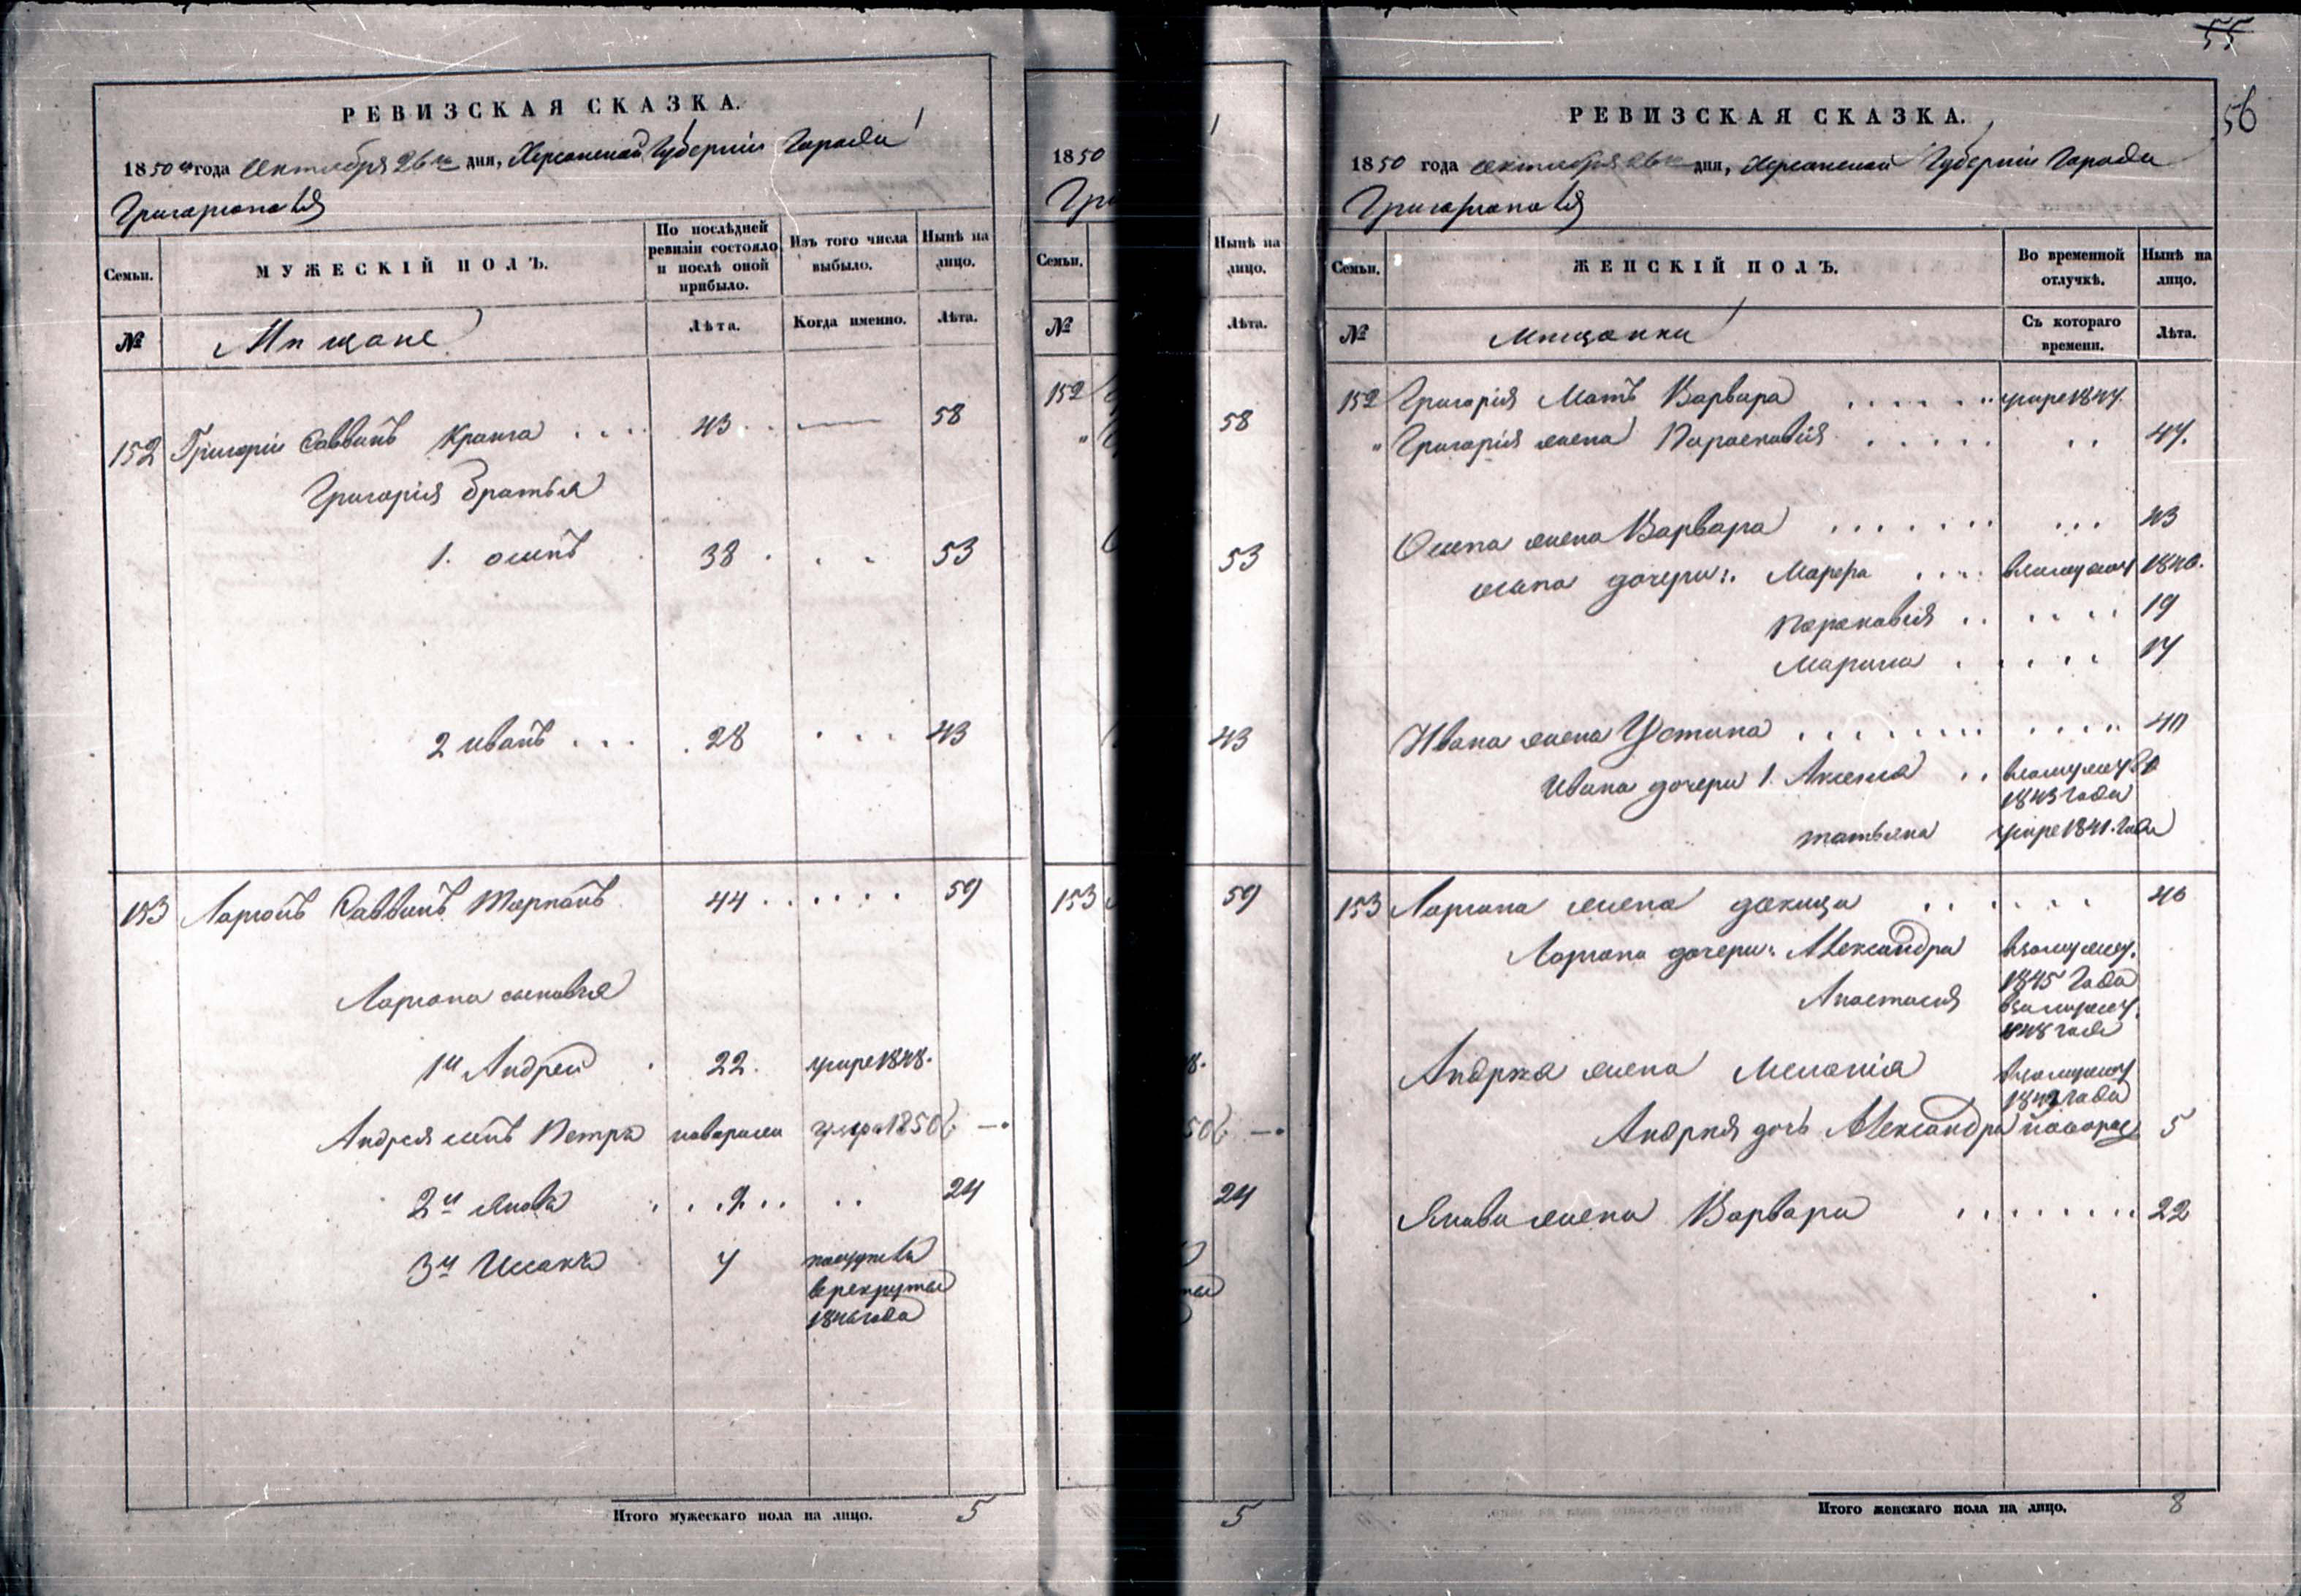 РЕВИЗСКАЯ СКАЗКА.
1850 года Октября 26 дня, Херсонской Губернии Города
Григориополя
Семьи.
МУЖЕСКІЙ ПОЛЪ.
По послѣдней ревизіи состояло и послѣ оной прибыло.
Изъ того числа выбыло.
Нынѣ на лицо.
№
Мѣщане
Лѣта.
Когда именно.
Лѣта.
152 Григорій Саввинъ 43 58
Григорія братья
1. осипъ 38 53
2 иванъ 28 43
153 Ларіонъ Саввинъ 44 59
Ларіона сыновья
1й Андрей 22. умре 1848.
Андрея сынъ Петръ новорожд 1850
2й яковъ 9 24
3й Исакъ 7
в рекруты
1846 года
Итого мужескаго пола на лицо. 5
1850
Гри
Семьи.
Нынѣ на лицо.
№
Лѣта.
152 58
53
43
153 59
8.
24
5
55
56
РЕВИЗСКАЯ СКАЗКА.
1850 года октября 26 дня, Херсонской Губерніи Города
Григориополя
Семьи.
ЖЕНСКІЙ ПОЛЪ.
Во временной отлучкѣ.
Нынѣ на лицо.
№
Мѣщанки
Съ котораго времени.
Лѣта.
152 Григорія Мать Варвара умре 1847.
" Григорія жена Параскавія 47.
Осипа жена Варвара 43
осипа дочери: в замужи 1840.
19
Марина 17
Ивана жена Устина 40
Ивана дочери 1. Аксенія в замужу
1843 года
татьяна умре 1841. года
153 Ларіона жена 40
Ларіона дочери: Александра в замужу.
1845 года
Анастасія в замужу.
1848 года
Андрея жена Меланія в замужу
1849 года
Андрея дочь Александра новорож 5
Якова жена Варвара 22
Итого женскаго пола на лицо. 8